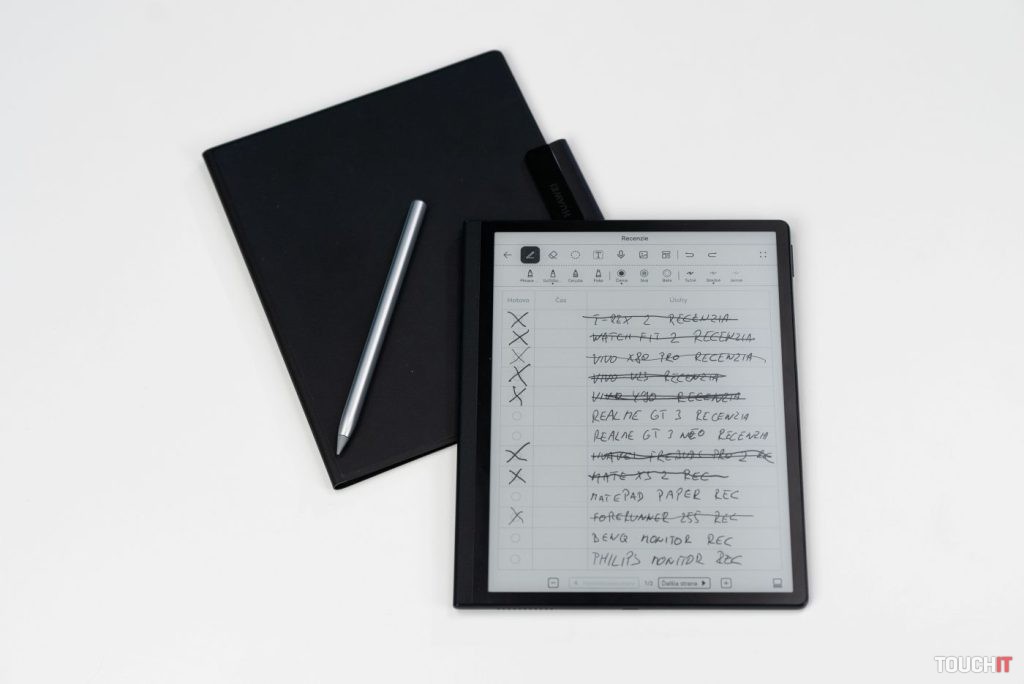 HUAWEI
Recenzie
T
Čierna Sivá Biela
Hotovo Čas Úlohy
T-REX 2 RECENZIA
WATCH FIT 2 RECENZIA
VIVO X80 PRO RECENZIA
VIVO V23 RECENZIA
VIVO RECENZIA
REALME GT 3 RECENZIA
REALME GT 3 NEO RECENZIA
HUAWEI FREEBUDS PRO 2 REC
MATE XS 2 REC
MATEPAD PAPER REC
FORERUNNER 255 REC
BENQ MONITOR REC
PHILIPS MONITOR REC
1/3 Ďalšia strana
TOUCHIT